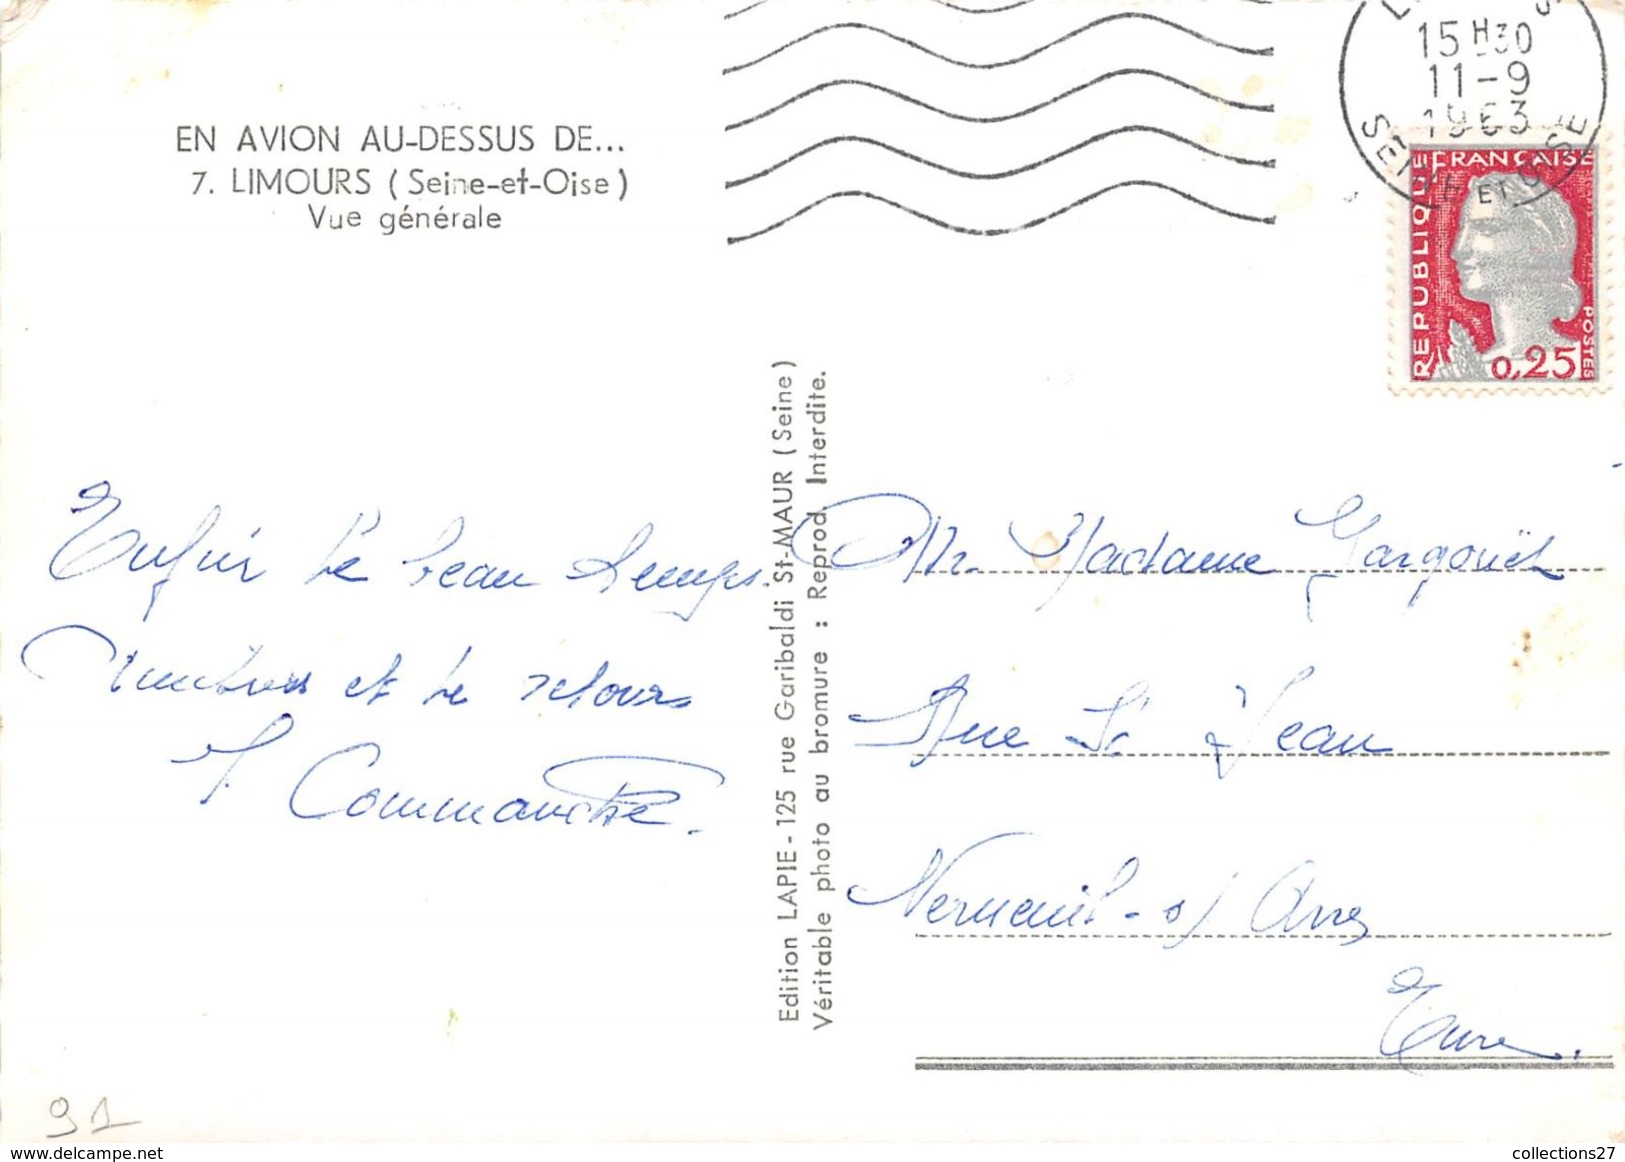 EN AVION AU-DESSUS DE...
7. LIMOURS (Seine-et-Oise)
Vue générale
15 H30
11-9
1963
SEINE ET OISE
REPUBLIQUE FRANÇAISE
POSTES
0,25
Enfin le beau temps.
et le retour
Edition LAPIE - 125 rue Garibaldi St-MAUR (Seine)
Véritable photo au bromure : Reprod. Interdite.
Mr. Madame
Rue St Jean
Verneuil - s/ Avre
Eure.
91
collections27